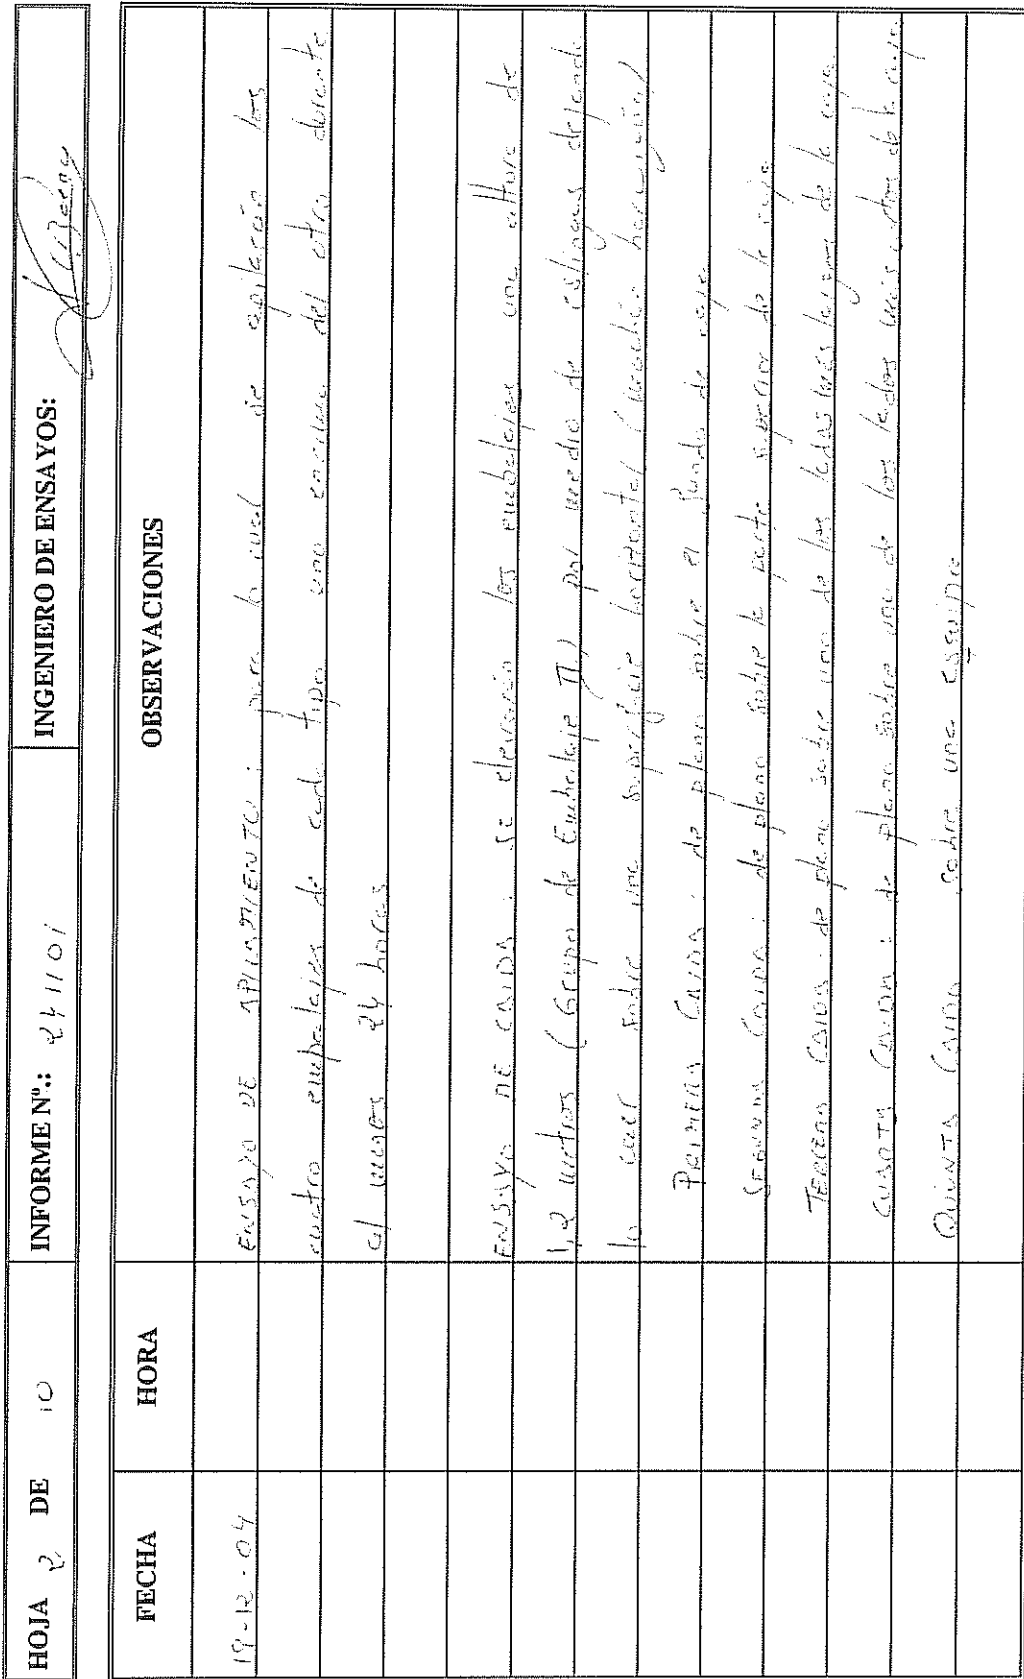 HOJA 2 DE 10 INFORME Nº.: 241101 INGENIERO DE ENSAYOS:
FECHA HORA OBSERVACIONES
19-12-04 ENSAYO DE APILAMIENTO : para lo cual se apilarán los
cuatro embalajes de cada tipo uno encima del otro durante
al menos 24 horas
ENSAYO DE CAIDA : se elevarán los embalajes una altura de
1,2 metros (Grupo de Embalaje II) por medio de eslingas dejando
lo caer sobre una superficie horizontal
PRIMERA CAIDA : de plano sobre el fondo de caja
SEGUNDA CAIDA : de plano sobre la parte superior de la caja
TERCERA CAIDA : de plano sobre uno de los lados más largos de la caja
CUARTA CAIDA : de plano sobre uno de los lados más cortos de la caja
QUINTA CAIDA : sobre una esquina